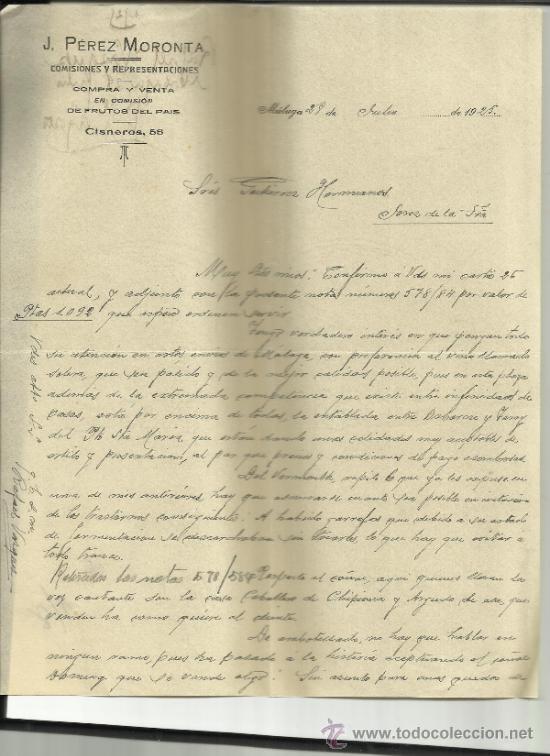 J. PÉREZ MORONTA
COMISIONES Y REPRESENTACIONES
COMPRA Y VENTA
EN COMISIÓN
DE FRUTOS DEL PAIS
Cisneros, 56
Málaga 29 de Julio de 1925.
Sres Gutiérrez Hermanos.
Jerez de la Frª
Muy Sres mios: Confirmo a Vds mi carta 25
actual, y adjunto con la presente notas números 578/84 por valor de
Ptas 1.092 que espero ordenen servir
Tengo verdadero interés en que pongan toda
su atención en estos envios de Málaga, con preferencia al vino llamado
solera, que sea pálido y de la mejor calidad posible, pues en esta plaza
además de la extremada competencia que existe entre infinidad de
casas, está por encima de todas, la entablada entre Osborne y Terry
del Pto Sta María, que estan dando unas calidades muy
estilo y presentación, al par que precios y condiciones de pago asombrosas
Del Vermouth, repito lo que ya les expuse en
una de mis anteriores, hay que en cuanto sea posible en evitación
de los trastornos consiguientes: A habido garrafas que debido a su estado
de fermentación se descorchaban sin tocarlas, lo que hay que evitar a
todo trance.
Referidas las notas 578/584 Respecto al coñac, aqui quienes llevan la
voz cantante son la casa Caballero de Chipiona y Argudo de esa, que
vender ha como quiere el cliente.
De embotellado, no hay que hablar en
ningun ramo, pues ha pasado a la historia exceptuando el coñac
Domecq que se vende algo: Sin asunto para mas quedo de
Vds affo S.S.
q. e. s. m.
www.todocoleccion.net